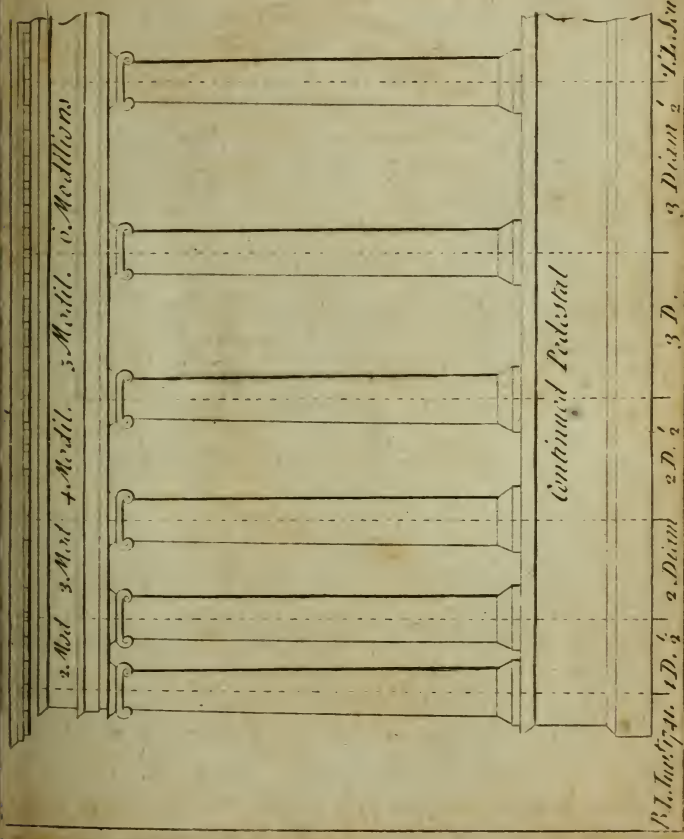 2. Mod 3. Mod 4. Modil. 5. Modil. 6. Modillions
Continued Pedestal
B. L. Inv.t 1741. 1 D. ½ 2. Diam 2 D. ½ 3 D. 3 Diam ½